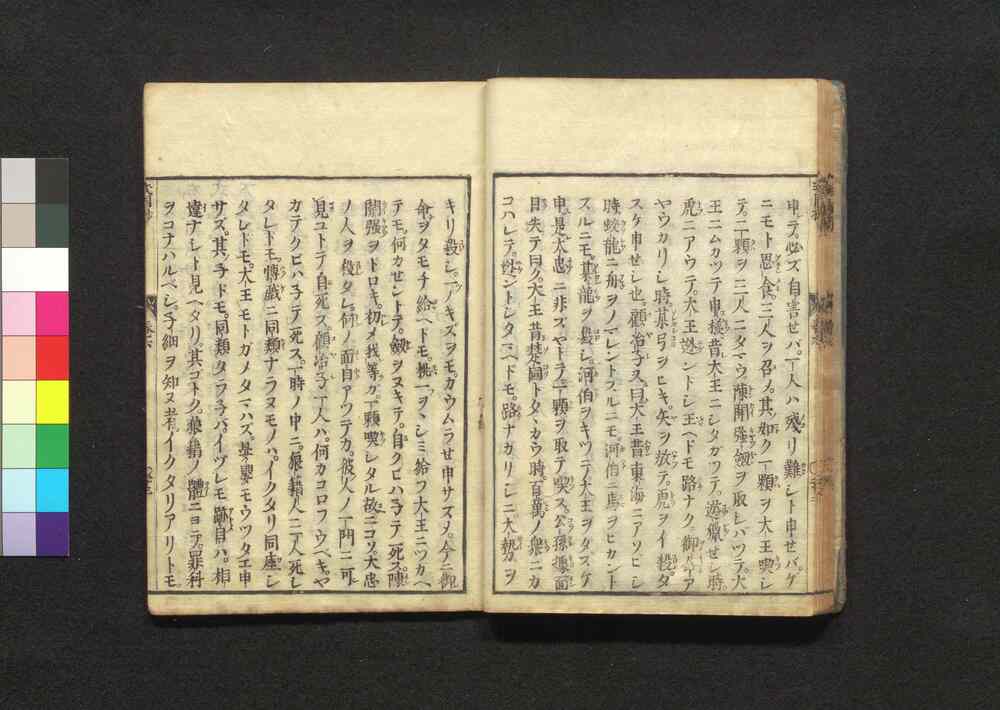 申テ必ズ自害せバ一人ハ殘リ難シト申せバゲ
ニモト思食三人ヲ召メ其如ク一顆ヲ大王喫シ
テ一顆ヲ二人ニタマウ陳開強劔ヲ取シバツテ大
王ニムカツテ申樣昔大王ニシタガフテ遊獵せシ時
虎ニアウテ大王迯ントシ玉ヘドモ路ナク御命ア
ヤウカリシ時某弓ヲヒキ矢ヲ放テ虎ヲイ殺タ
スケ申せシ也顧冶子又曰大王昔東海ニアソビシ
時蛟龍ニ舟ヲノマレントスルニモ河伯ニ馬ヲヒカント
スルニモ某龍ヲ殺シ河伯ヲキツテ大王ヲタスケ
申是大忠ニ非ズヤトテ一顆ヲ取テ喫ス公孫攄面
目失テ曰ク大王昔楚國トタヽカウ時百萬ノ衆ニカ
コハレテ死ントシタマヘドモ路ナカリシニ大勢ヲ
キリ殺シ一ノキズヲモカウムラせ申サズメ今ニ御
命ヲタモチ給ヘドモ桃一ヲヽシミ給フ大王ニツカヘ
テモ何カせントテ劔ヲヌキテ自クビハ子テ死ス陳
開强ヲドロキ初メ我等ガ一顆喫シタル故ニコソ大忠
ノ人ヲ殺タレ何ノ面目アツテカ彼人ノ一門ニ可
見ユトテ自死ス顧冶子一人ハ何カコロフウベキヤ
カテクビハ子テ死ス一時ノ中ニ狼藉人ニ三人死シ
タレド王ノ傳戲ニ同類ナラヌモノハイクタリ同座シ
タレドモ大王モトガメタマハズ晏嬰モウツタエ申
サズ其ノ子ドモ同類タラ子バイヅレモ跡自ハ相
違ナシト見ヘタリ其ゴトク狼藉ノ體ニヨテ罪科
ヲコナハルベシ子細ヲ知ヌ者イクタリアリトモ